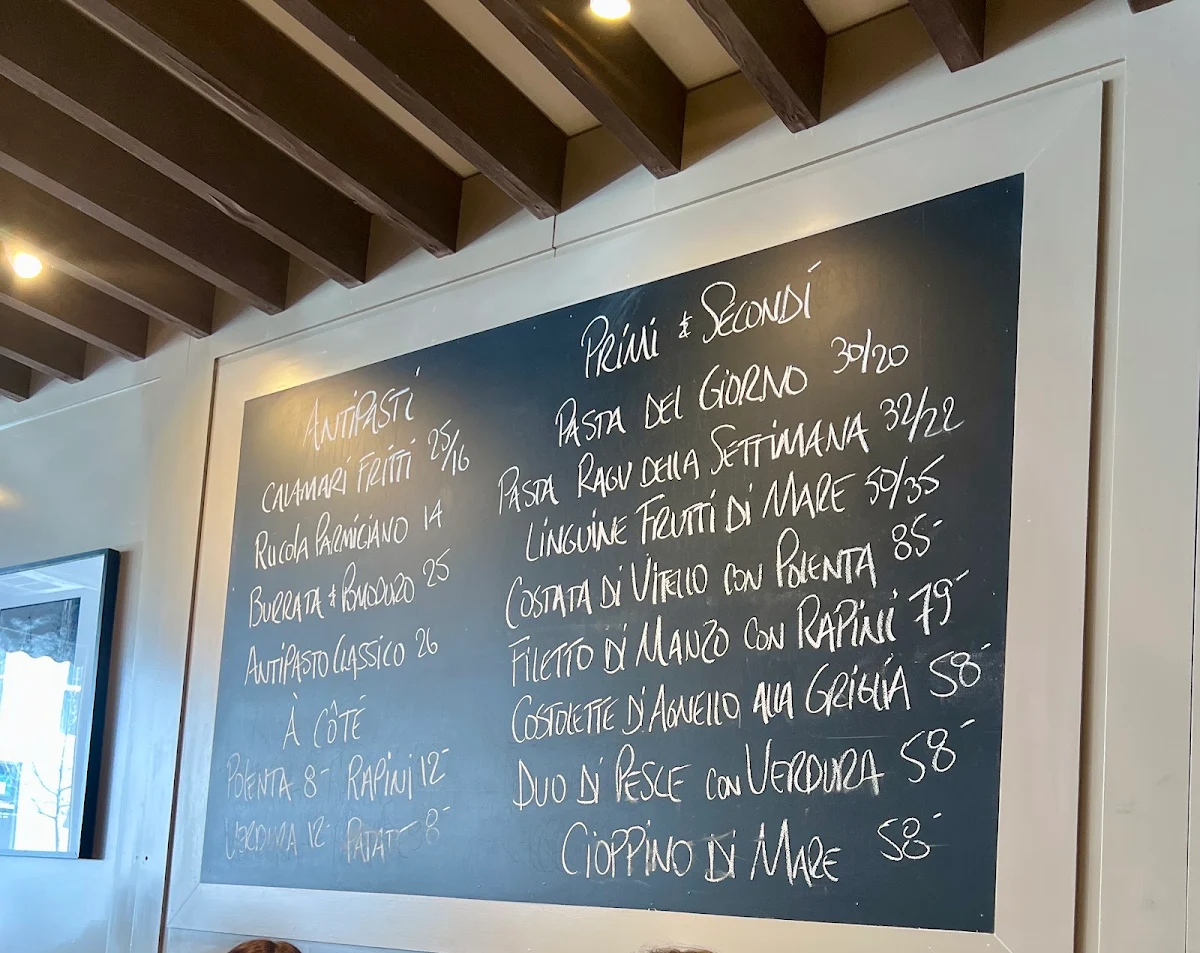 ANTIPASTI
CALAMARI FRITTI 25/16
RUCOLA PARMIGIANO 14
BURRATA & POMODORO 25
ANTIPASTO CLASSICO 26
À CÔTÉ
POLENTA 8- RAPINI 12-
VERDURA 12- PATAT 8-
PRIMI & SECONDI
PASTA DEL GIORNO 30/20
PASTA RAGU DELLA SETTIMANA 32/22
LINGUINE FRUTTI DI MARE 50/35
COSTATA DI VITELLO CON POLENTA 85-
FILETTO DI MANZO CON RAPINI 79-
COSTOLETTE D'AGNELLO ALLA GRIGLIA 58-
DUO DI PESCE CON VERDURA 58-
CIOPPINO DI MARE 58-